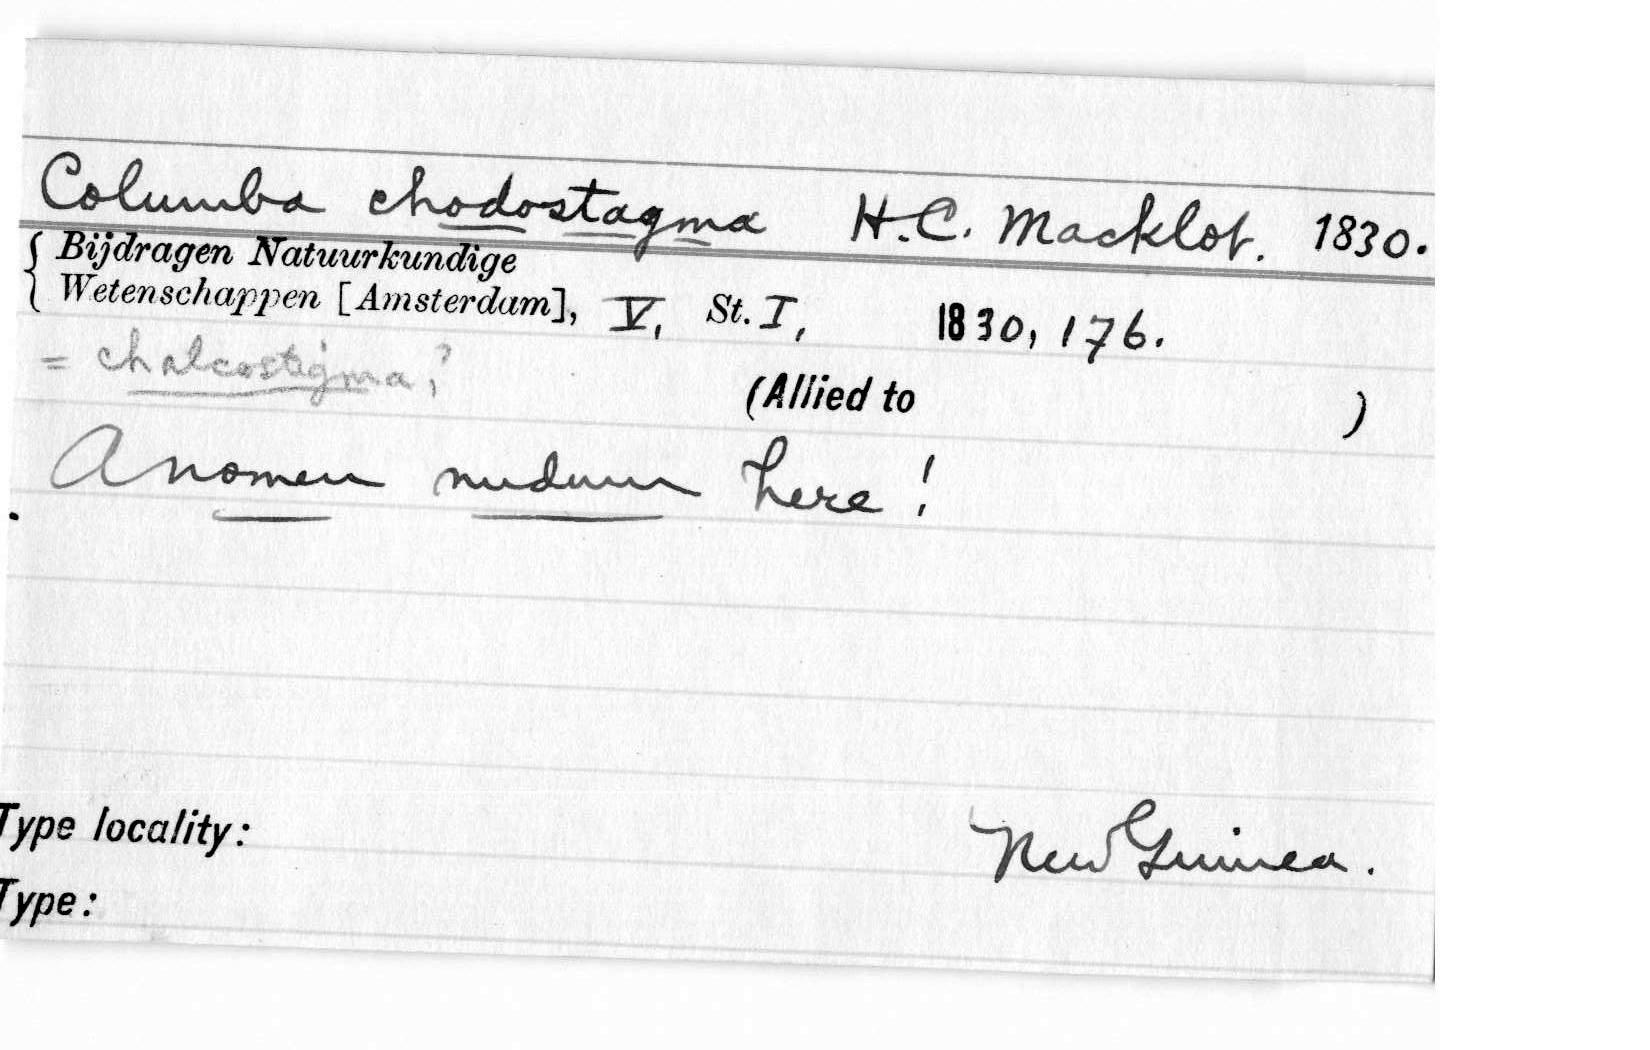 Columba chodostagma H.C. Macklot. 1830.
{ Bijdragen Natuurkundige
Wetenschappen [Amsterdam], V, St. I, 1830, 176.
= chalcostigma,?
(Allied to )
A nomen nudum here!
Type locality: New Guinea.
Type: